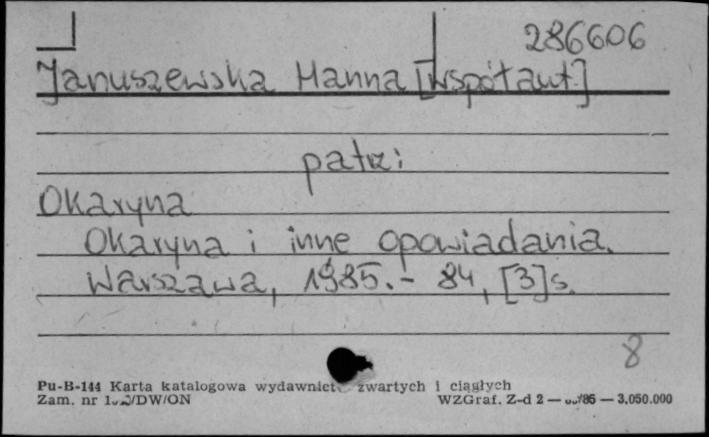 286606
Januszewska Hanna [współaut.]
patrz:
Okaryna
Okaryna i inne opowiadania.
Warszawa, 1985. - 84, [3] s.
8
Pu-B-144 Karta katalogowa wydawnictw zwartych i ciągłych
Zam. nr /DW/ON WZGraf. Z-d 2 — /86 — 3.050.000